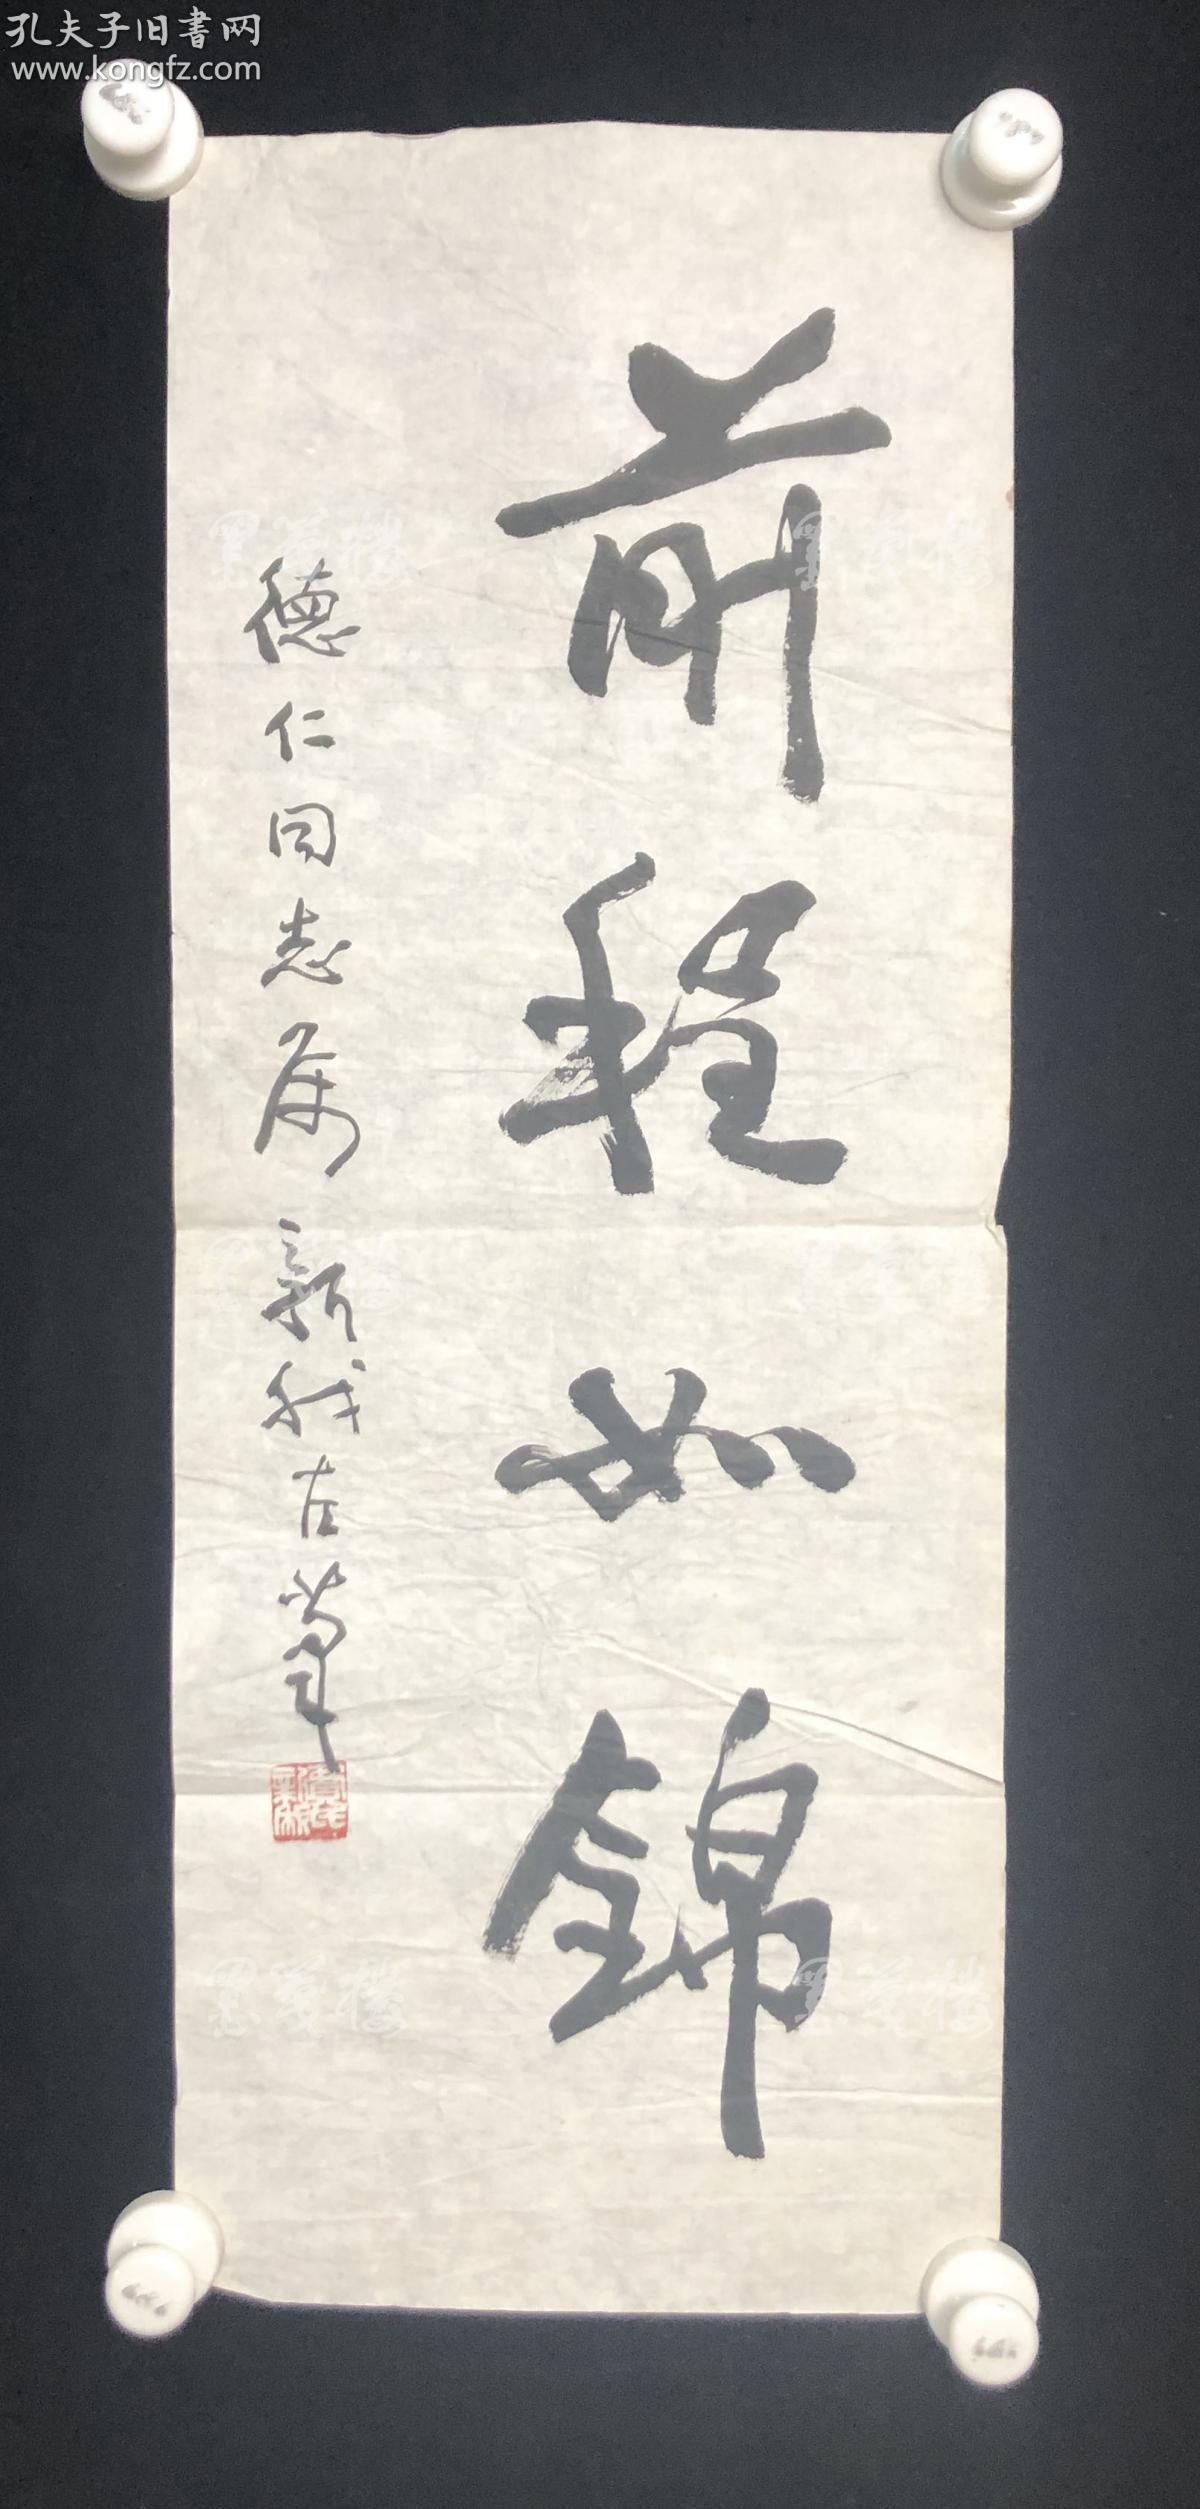 孔夫子旧書网
www.kongfz.com
前程如錦
德仁同志属 新我左笔